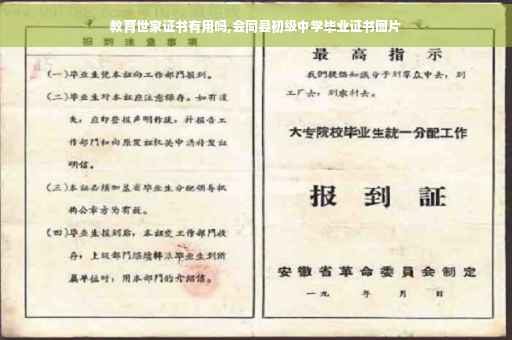 教育世家证书有用吗,会同县初级中学毕业证书图片
报到注意事项
(一)毕业生凭本证向工作部门报到。
(二)毕业生对本证应注意保存。如有遗
失,应即登报声明作废,并报告工
作部门和向原发证机关申请补发证
明信。
(三)本证必须加盖省毕业生分配领导机
构公章方为有效。
(四)毕业生报到后,本证交工作部门收
存,上级部门
毕业生到所
属单位时,用本部门的介绍信。
最高指示
我们提倡知识分子到群众中去,到
工厂去,到农村去。
大专院校毕业生统一分配工作
报到証
安徽省革命委員会制定
一九 年 月 日